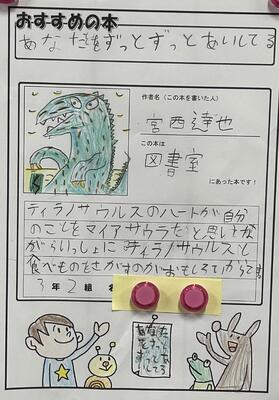 おすすめの本
あなたをずっとずっとあいしてる
作者名(この本を書いた人)
宮西達也
この本は
図書室
にあった本です!
ティラノサウルスのハートが自分
のことをマイアサウラだと思いな
がらいっしょにティラノサウルスと
食べものをさがすのがおもしろいからです。
3年2組
あなたを
ずっと
ずっと
あいしてる